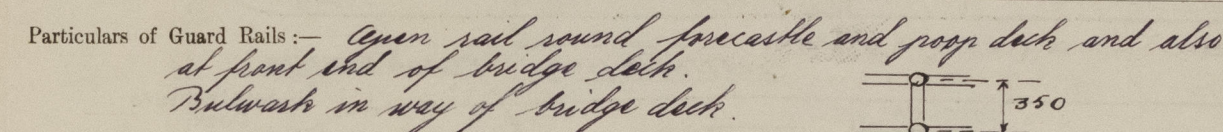 Particulars of Guard Rails :— Open rail round forecastle and poop deck and also
at front end of bridge deck.
Bulwark in way of bridge deck.
350